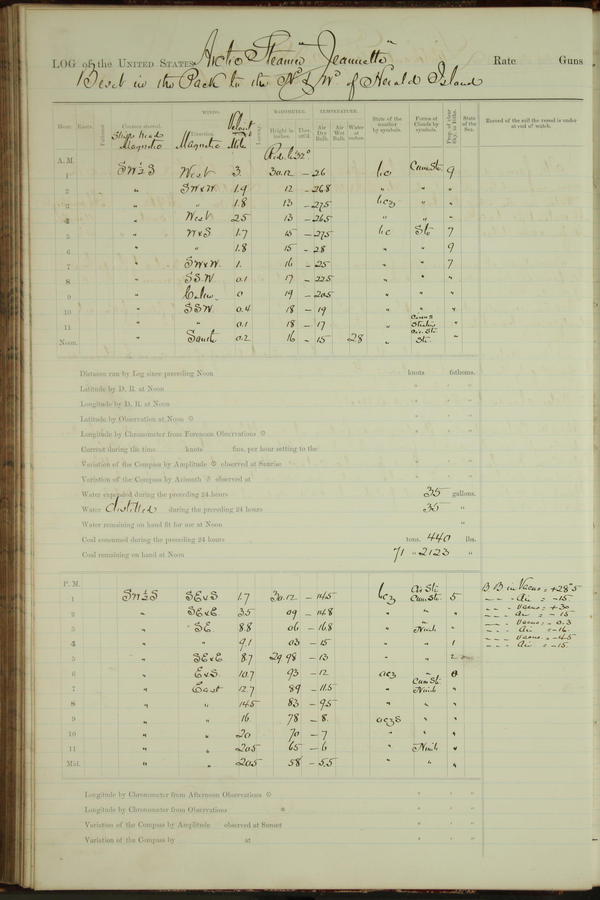 LOG of the UNITED STATES Arctic Steamer "Jeannette" Rate Guns
Beset in the Pack to the Nd & Wd of Herald Island
Hour. Knots. Fathoms. Courses steered. WINDS. Leeway. BAROMETER. TEMPERATURE. State of the weather by symbols. Forms of Clouds by symbols. Prop. of clear Sky, in 10ths. State of the Sea. Record of the sail the vessel is under at end of watch.
Ship's Head Magnetic Direction Magnetic Velocity Mls. Height in inches. Ther. att'd. Air Dry Bulb. Air Wet Bulb. Water at
Red. to 32°
A. M.
1 SW½S West 3. 30.12 -26 bc Cum Str 9
2 " SWxW 1.9 12 -26.8 " " "
3 " " 1.8 13 -27.5 bcz " "
4 " West 2.5 13 -26.5 " " "
5 " WxS 1.7 15 -27.5 bc Str 7
6 " " 1.8 15 -28 " " 9
7 " SWxW 1. 16 -25 " " 7
8 " SSW. 0.1 17 -22.5 " " "
9 " Calm 0 19 -20.5 " " "
10 " SSW 0.4 18 -19 " " "
11 " " 0.1 18 -17 "
Noon. " South 0.2 16 -15 28 " Str. "
Distance run by Log since preceding Noon knots fathoms.
Latitude by D. R. at Noon ° ' "
Longitude by D. R. at Noon ° ' "
Latitude by Observation at Noon ° ' "
Longitude by Chronometer from Forenoon Observations ° ' "
Current during the time knots fms. per hour setting to the
Variation of the Compass by Amplitude observed at Sunrise ° ' "
Variation of the Compass by Azimuth observed at ° ' "
Water expended during the preceding 24 hours 35 gallons.
Water distilled during the preceding 24 hours 35 "
Water remaining on hand fit for use at Noon "
Coal consumed during the preceding 24 hours tons. 440 lbs.
Coal remaining on hand at Noon 71 " 2123 "
P. M.
1 SW½S SExS 1.7 30.12 -14.5 bcz Cir Str Cum Str. 5 B B in Vacuo = +28°5
2 " SExE 3.5 09 -14.8 " " " " " " Air = -15
3 " SE 8.8 06 -16.8 " Nimb "
4 " " 9.1 03 -15 " " 1
5 " SExE 8.7 29.98 -13 " "
6 " ExS 10.7 93 -12 ocz " 0
7 " East 12.7 89 -11.5 " Cum Str. Nimb "
8 " " 14.5 83 -9.5 " " "
9 " " 16. 78 -8. oczs " "
10 " " 20 70 -7 " " "
11 " " 20.5 65 -6 " Nimb "
Mid. " " 20.5 58 -5.5 " " "
Longitude by Chronometer from Afternoon Observations ° ' "
Longitude by Chronometer from Observations ° ' "
Variation of the Compass by Amplitude observed at Sunset ° ' "
Variation of the Compass by at ° ' "